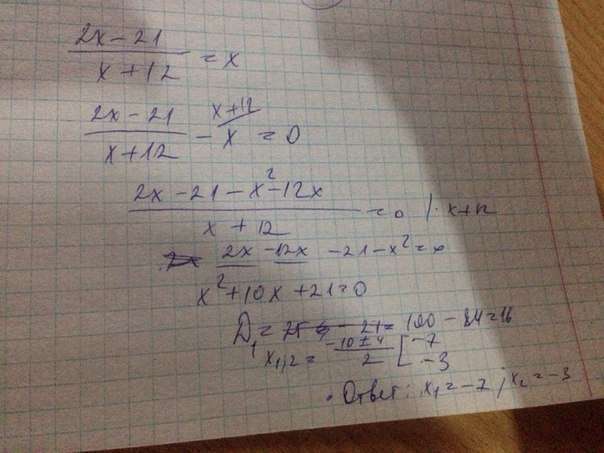 (2x - 21)/(x + 12) = x
(2x - 21)/(x + 12) - x = 0 x+12
(2x - 21 - x² - 12x)/(x + 12) = 0 | · x+12
2x - 12x - 21 - x² = 0
x² + 10x + 21 = 0
D₁ = = 100 - 84 = 16
x₁,₂ = (-10 ± 4)/2 [ -7
-3
Ответ: x₁ = -7; x₂ = -3